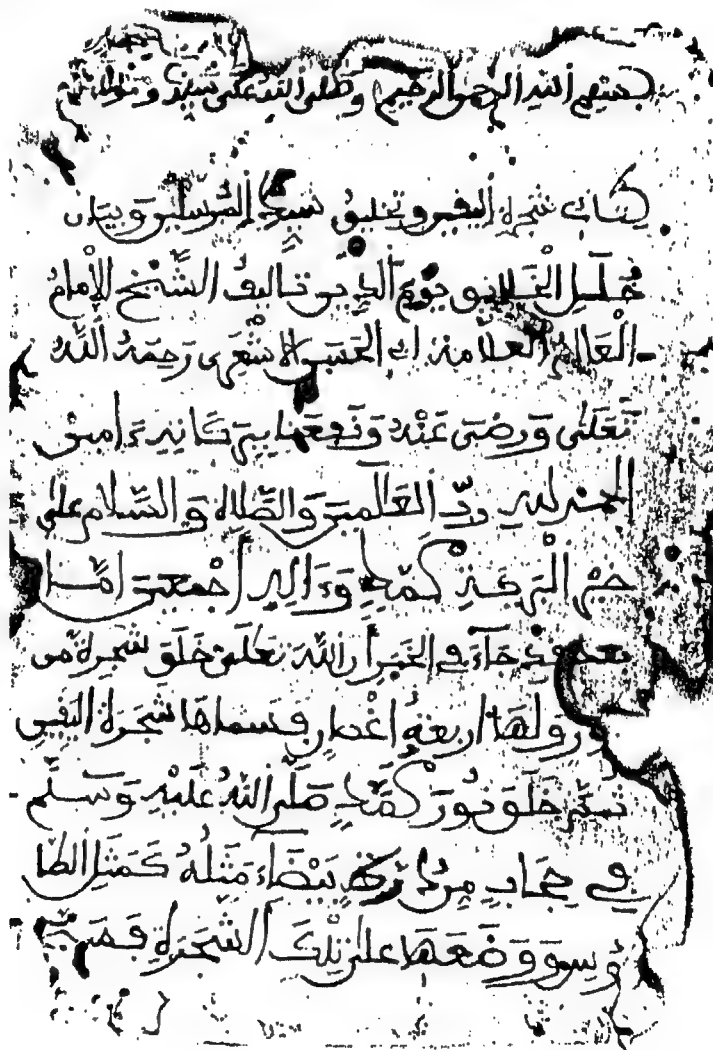 بسم الله الرحمن الرحيم وصلى الله على سيدنا ومولانا
كتاب شجرة اليقين وتخليق سيد المرسلين وبيان
حال الخلايق يوم الدين تاليف الشيخ الإمام
الْعَالِم العلامة ابى الحسن الاشعرى رَحِمَهُ اللَّهُ
تَعَلَى وَرَضِيَ عَنْهُ وَنَفَعَنَا بِبَرَكَاتِهِ ءَامين
الحمد لله ربّ العَالَمِينَ وَالصَّلاة وَالسَّلام على
خير الْبَرِيَّةِ محمّدٍ وَءَالِهِ أجْمَعِينَ امّا
بعد فقد جَآءَ في الخَبَرِ أن اللّهَ تَعَلَى خَلَقَ شَجَرة من
ولها اربعة اغْصان فسماها شَجَرَة اليقين
ثمّ خَلَقَ نُورَ محمّدٍ صَلَّى اللهُ عَلَيْهِ وَسَلَّم
في حِجَابٍ مِن دُرّة بَيْضَاءَ مَثَلُهُ كَمَثَلِ الطَّا
ؤسِ وَوَضَعَهَا على تِلْكَ الشَّجَرَةِ